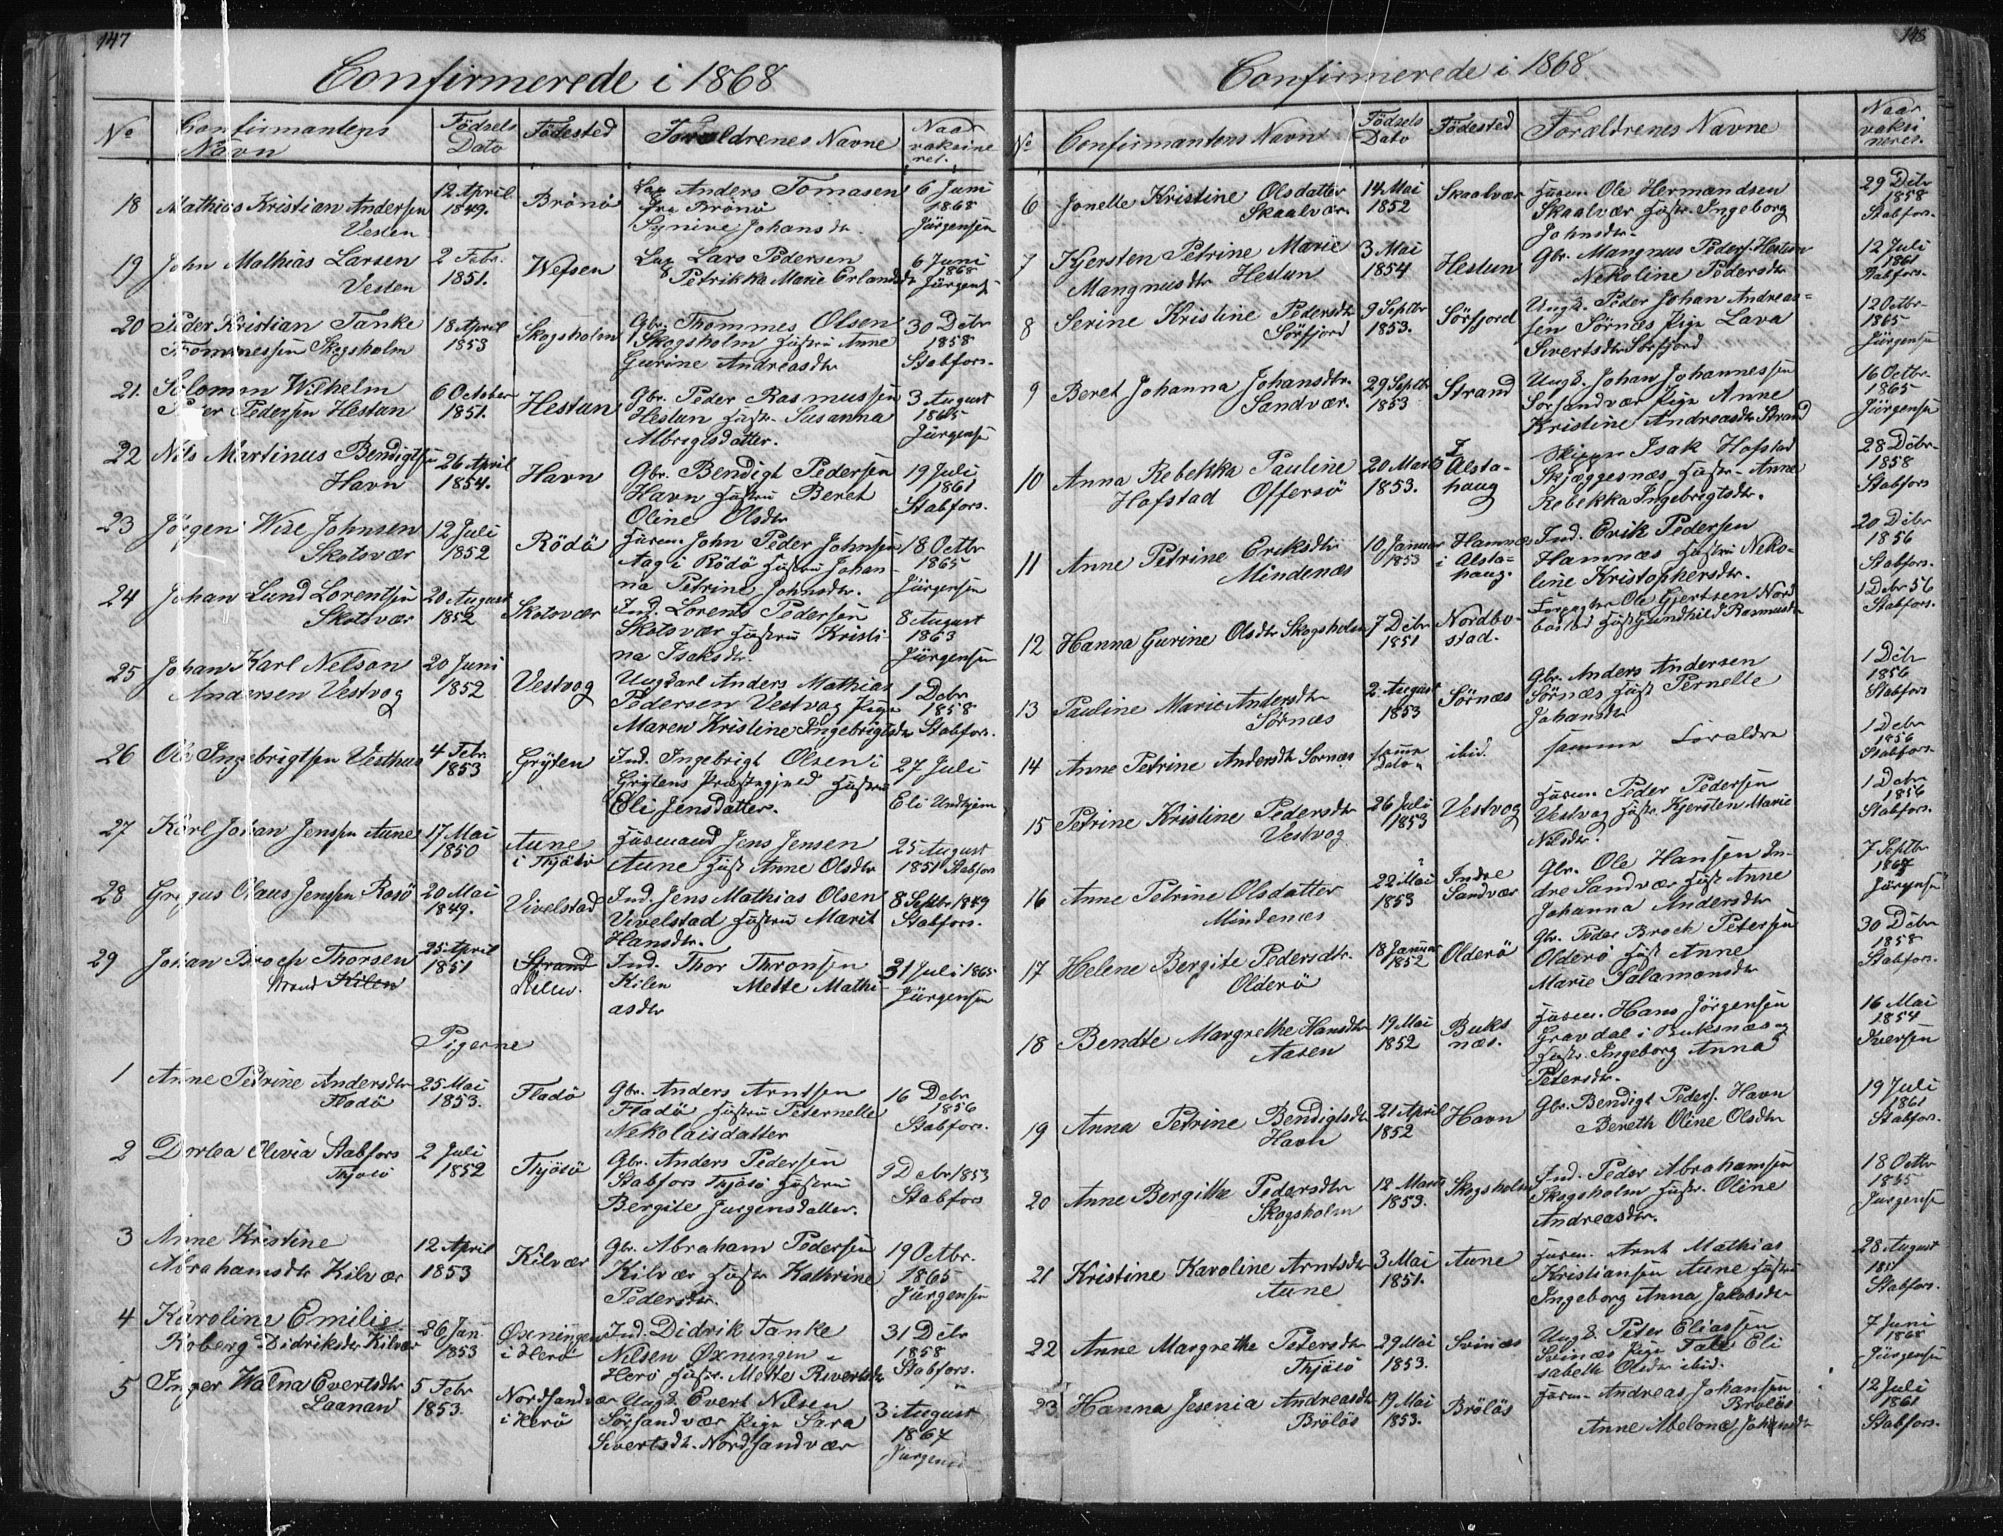 147
Confirmerede i 1868
No
Confirmantens Navn
Födsels Dato
Födested
Forældrenes Navne
Naar vaksineret.
18 Mathias Kristian Andersen 12 April Brönö Lap Anders Tomasen 6 Juni
Vesten 1849. Brönö 1868
Synive Johansdr. Jürgensen
19 John Mathias Larsen 2 Febr. Wefsen Lap Lars Pedersen 6 Juni
Vesten 1851. Petrikka Marie Erlandsdr 1868 Jürgensen
20 Peder Kristian Tanke 18 April Skogsholm Gbr. Thommes Olsen 30 Debr
Tommessen Skogsholm 1853 Skogsholm Hustru Anne 1858
Gurine Andreasdtr Stabfors.
21. Solomon Wilhelm 6 October Hestun Gbr. Peder Rasmussen 3 August
Peder Pedersen Hestun 1851. Hestun Hustr. Susanna 1865
Albrigtsdatter. Jürgensen
22 Nils Martinus Bendigtsen 26 April Havn Gbr. Bendigt Pedersen 19 Juli
Havn 1854. Havn Hustru Beret 1861
Oline Olsdtr Stabfors.
23 Jörgen Wise Johnsen 12 Juli Rödö Husm. John Peder Johnsen 18 Octbr
Skotsvær 1852 Aag i Rödö Hustru Johan- 1865
na Petrine Johnsdtr. Jürgensen
24 Johan Lund Lorentsen 20 August Skotsvær Ind. Lorents Pedersen 8 August
Skotsvær 1852 Skotsvær Hustru Kristi 1863
na Isaksdtr. Jürgensen
25 Johan Karl Nelson 20 Juni Vestvog Ungkarl Anders Mathias 1 Debr
Andersen Vestvog 1852 Pedersen Vestvog Pige 1858
Maren Kristine Ingebrigtsdr Stabfors.
26 Ole Ingebrigtsen Vesthus 4 Febr. Grÿten Ind. Ingebrigt Olsen i 27 Juli
1853 Grytens Præstegjeld Hustru
Eli Jensdatter. Eli Undhjem
27 Karl Johan Jenssen Aune 17 Mai Aune Husmand Jens Jensen 25 August
1850 i Thjötö Aune Hust Anne Olsdtr 1851 Stabfors
28 Gregus Olaus Jenssen Rosö 20 Mai Vivelstad Ind. Jens Mathias Olsen 8 Septbr 1849
1849. Vivelstad Hustru Marit Stabfors.
Hansdtr.
29 Johan Broch Thorsen 25 April Strand Ind. Thor Thronsen 31 Juli 1865
Strand Kilen 1851 Kilen. Kilen Mette Mathi- Jürgensen
asdtr
Pigerne
1 Anne Petrine Andersdtr 25 Mai Fladö Gbr. Anders Arntsen 16 Debr
Fladö 1853. Fladö Hustru Peternelle 1856
Nekolaisdatter Stabfors.
2 Dortea Olivia Stabfors 2 Juli Thjötö Gbr. Anders Pedersen 9 Debr 1853
Thjötö 1852 Stabfors Thjötö Hustru Stabfors
Bergite Jurgensdatter.
3 Anne Kristine 12 April Kilvær Gbr. Abraham Pedersen 19 Octbr.
Abrahamsdtr Kilvær 1853 Kilvær Hustr Kathrine 1865
Pedersdtr. Jürgensen
4 Karoline Emilie 26 Jan Oxningen Ind. Didrik Tanke 31 Debr
Roberg Didriksdtr Kilvær 1853 i Herö Nilsen Oxningen 1858
Herö Hustr. Mette Sivertsdtr Stabfors.
5 Inger Walna Evertsdtr 5 Febr Nordsandvær Ungk. Evert Nilsen 3 August
Laanan 1853. i Herö Sörsandvær Pige Sara 1867
Sivertsdtr. Nordsandvær Jurgensen
148
Confirmerede i 1868
No
Confirmantens Navn
Födsels Dato
Födested
Forældrenes Navne
Naar vaksineret.
6 Jonelle Kristine Olsdatter 14 Mai Skaalvær Husm. Ole Hermandsen 29 Debr
Skaalvær. 1852 Skaalvær Hustr. Ingeborg 1858
Johnsdtr. Stabfors.
7 Kjersten Petrine Marie 3 Mai Hestun Gbr. Mangnus Peders. Hestun 12 Juli
Mangnusdtr Hestun 1854 Nekoline Pedersdtr 1861 Stabfors.
8 Serine Kristine Pedersdtr 9 Septbr Sörfjord Ungk. Peder Johan Andreas- 12 Octbr
Sörfjord 1853. sen Sörnæs Pige Lava 1865
Sivertsdtr Sörfjord Jürgensen
9 Beret Johanna Johansdtr. 29 Septbr Strand Ungk. Johan Johannessen 16 Octbr.
Sandvær. 1853 Sorsandvær Pige Anne 1865
Kristine Andreasdtr Strand Jürgensen
10 Anna Rebekka Pauline 20 Marts Alsta- Skipper Isak Hofstad 28 Debr.
Hofstad Offersö 1853. haug Skjæggesnæs Hustr. Anne 1858
Rebekka Ingebrigtsdtr. Stabfors
11 Anne Petrine Eriksdtr 10 Januar Hamnæs Ind. Erik Pedersen 20 Debr
Mindenæs 1853 i Alsta- Hamnæs Hustru Neko- 1856
haug. line Kristophersdtr. Stabfors.
12 Hanna Gurine Olsdtr Skogsholm 7 Debr Nordbo- Forpagter Ole Gjertsen Nord 1 Debr 56
1851 stad. bostad Hust Gundhild Rasmusdtr Stabfors.
13 Pauline Marie Andersdtr 2 August Sörnæs Gbr. Anders Andersen 1 Debr
Sörnæs 1853 Sörnæs Hustr Pernelle 1856
Johansdtr Stabfors
14 Anne Petrine Andersdtr Sornæs samme Dato ibid. samme Foraldre 1 Debr
1856 Stabfors.
15 Petrine Kristine Pedersdtr 26 Juli Vestvog Husm. Peder Pedersen 1 Debr
Vestvog 1853 Vestvog Hustr. Kjersten Marie 1856
Nilsdtr. Stabfors.
16 Anne Petrine Olsdatter 22 Mai Indre Gbr. Ole Hansen In- 7 Septbr
Mindenæs 1853 Sandvær dre Sandvær Hust Anne 1867
Johanna Andersdtr Jürgensen
17 Helene Bergite Pedersdtr. 18 Januar Olderö Gbr. Peder Broch Petersen 30 Debr
Olderö 1852 Olderö Hust Anne 1858
Marie Salamonsdtr Stabfors.
18 Bendte Margrethe Hansdtr 19 Mai Buks Husm. Hans Jörgensen 16 Mai
Aasen 1852 næs. Gravdal i Buksnæs og 1854
Hustr. Ingeborg Anna Iversen
Petersdtr.
19 Anna Petrine Bendigtsdtr 21 April Havn Gbr. Bendigt Peders. Havn 19 Juli
Havn 1852 Bereth Oline Olsdtr 1861 Stabfors.
20 Anne Bergitte Pedersdtr 12 Marts Skogsholm Ind. Peder Abrahamsen 18 Octbr
Skogsholm 1853. Skogsholm Hustr. Oline 1865
Andreasdtr. Jurgensen
21 Kristine Karoline Arntsdtr 3 Mai Aune Husm. Arnt Mathias 28 August
Aune 1851. Kristiansen Aune Hustru 1851
Ingeborg Anna Jakobsdtr Stabfors.
22 Anne Margrethe Petersdtr 29 Mai Svinæs Ungk. Peter Eliassen 7 Juni
Thjötö 1853. Svinæs Pige Eli 1868
sabeth Olsdtr ibid. Jürgensen
23 Hanna Jesenia Andreasdtr 19 Mai Bröløs Husm. Andreas Johansen 12 Juli
Bröløs 1853. Bröløs 1861
Anne Abelone Johansdtr Stabfors.